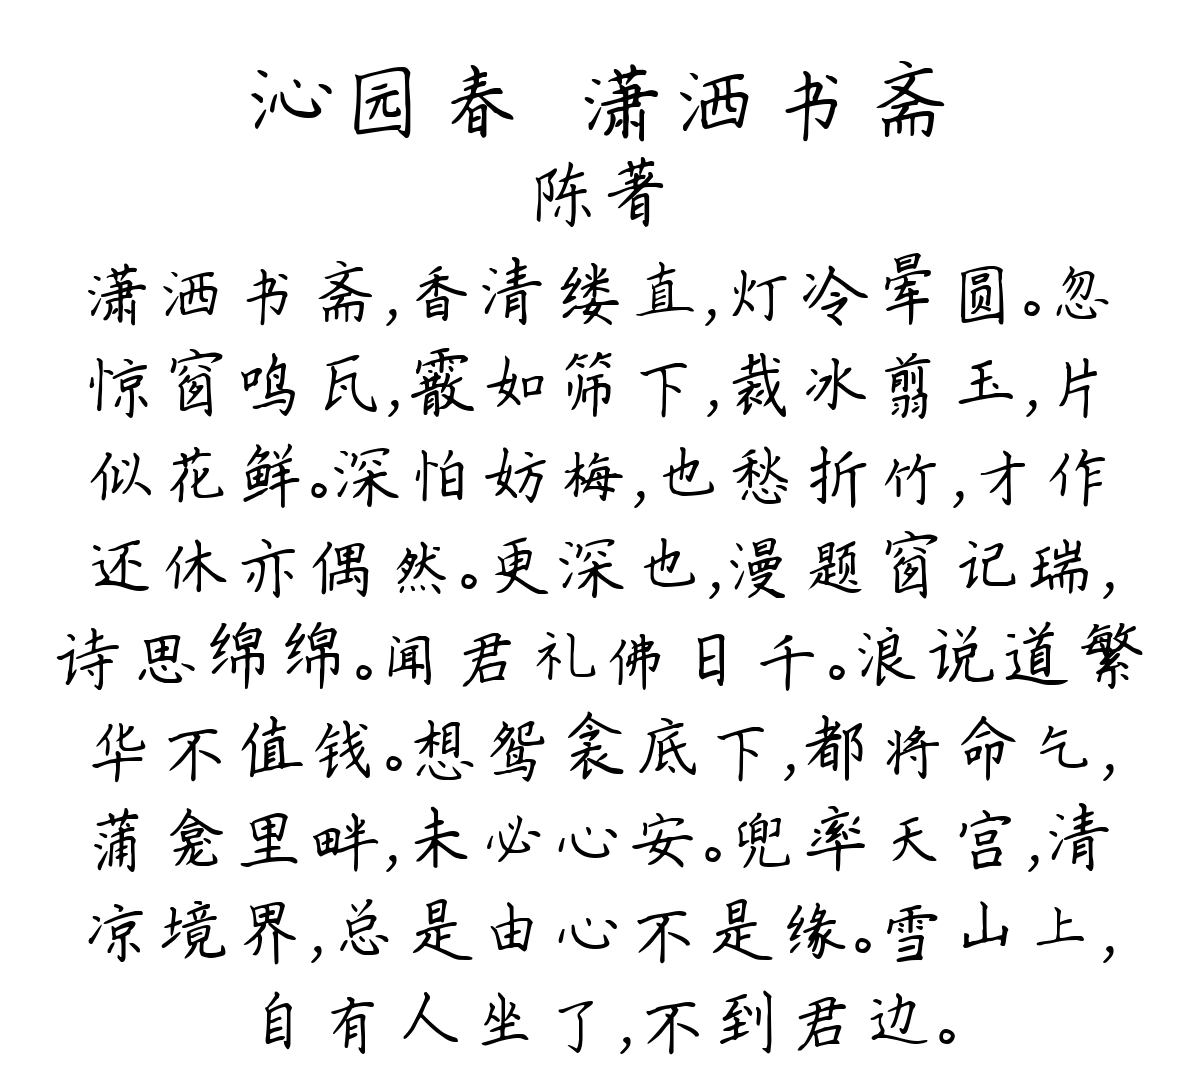 沁园春 潇洒书斋
陈著
潇洒书斋,香清缕直,灯冷晕圆。忽
惊窗鸣瓦,霰如筛下,裁冰剪玉,片
似花鲜。深怕妨梅,也愁折竹,才作
还休亦偶然。更深也,漫题窗记瑞,
诗思绵绵。闻君礼佛日千。浪说道繁
华不值钱。想鸳衾底下,都将命乞,
蒲龛里畔,未必心安。兜率天宫,清
凉境界,总是由心不是缘。雪山上,
自有人坐了,不到君边。